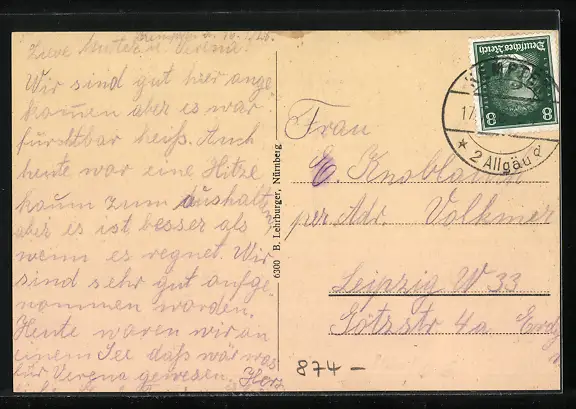 Liebe Mutter u. Verena!
Wir sind gut hier ange
kommen aber es war
furchtbar heiß. Auch
heute war eine Hitze
kaum zum Aushalten
aber es ist besser als
wenn es regnet. Wir
sind sehr gut aufge-
nommen worden.
Heute waren wir an
einem See daß wär was
für Verena gewesen. Herz
6300 B. Lehrburger, Nürnberg
Deutsches Reich
8 8
KEMPTEN
17.
* 2 Allgäu
Frau
E. Knoblauch
per Adr. Volkmer
Leipzig W 33
Götzstr 4a
874 –